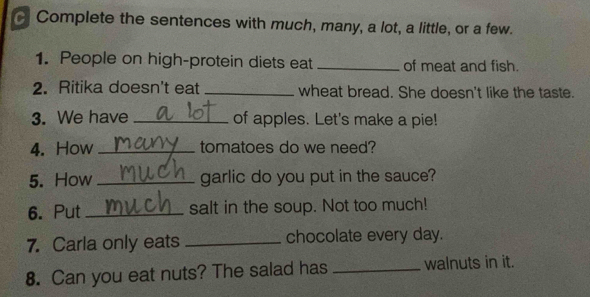 C Complete the sentences with much, many, a lot, a little, or a few.
1. People on high-protein diets eat __________ of meat and fish.
2. Ritika doesn't eat __________ wheat bread. She doesn't like the taste.
3. We have a lot of apples. Let's make a pie!
4. How many tomatoes do we need?
5. How much garlic do you put in the sauce?
6. Put much salt in the soup. Not too much!
7. Carla only eats __________ chocolate every day.
8. Can you eat nuts? The salad has __________ walnuts in it.